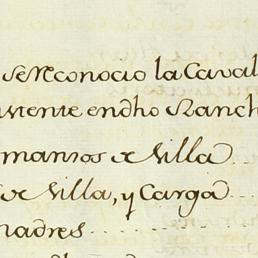 se Reconocio la Caval
istente en dho Ranch
mansos de Villa
de Villa, y Carga
madres